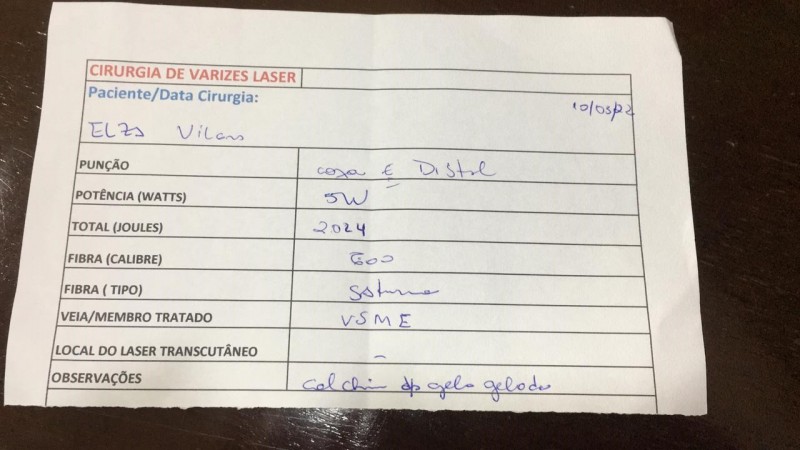 CIRURGIA DE VARIZES LASER
Paciente/Data Cirurgia: 10/05/22
ELZA Vilas
PUNÇÃO coxa E Distal
POTÊNCIA (WATTS) 5W
TOTAL (JOULES) 2024
FIBRA (CALIBRE) 600
FIBRA ( TIPO)
VEIA/MEMBRO TRATADO VSME
LOCAL DO LASER TRANSCUTÂNEO –
OBSERVAÇÕES gelo gelado